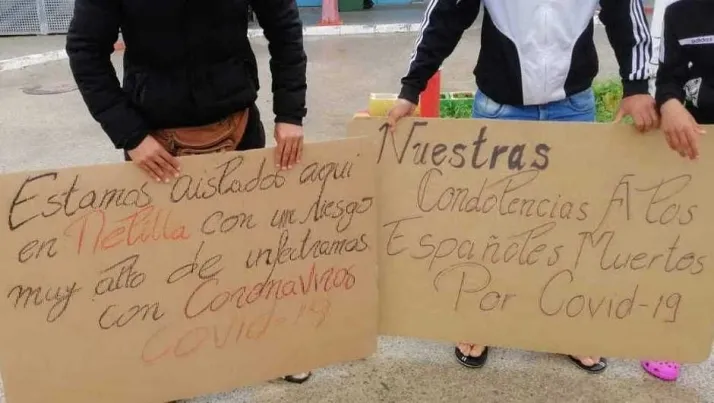 Estamos aislados aqui
en Melilla con un riesgo
muy alto de infectrarnos
con CoronaViros
Covid-19
Nuestras
Condolencias A los
Españoles Muertos
Por Covid-19
adidas